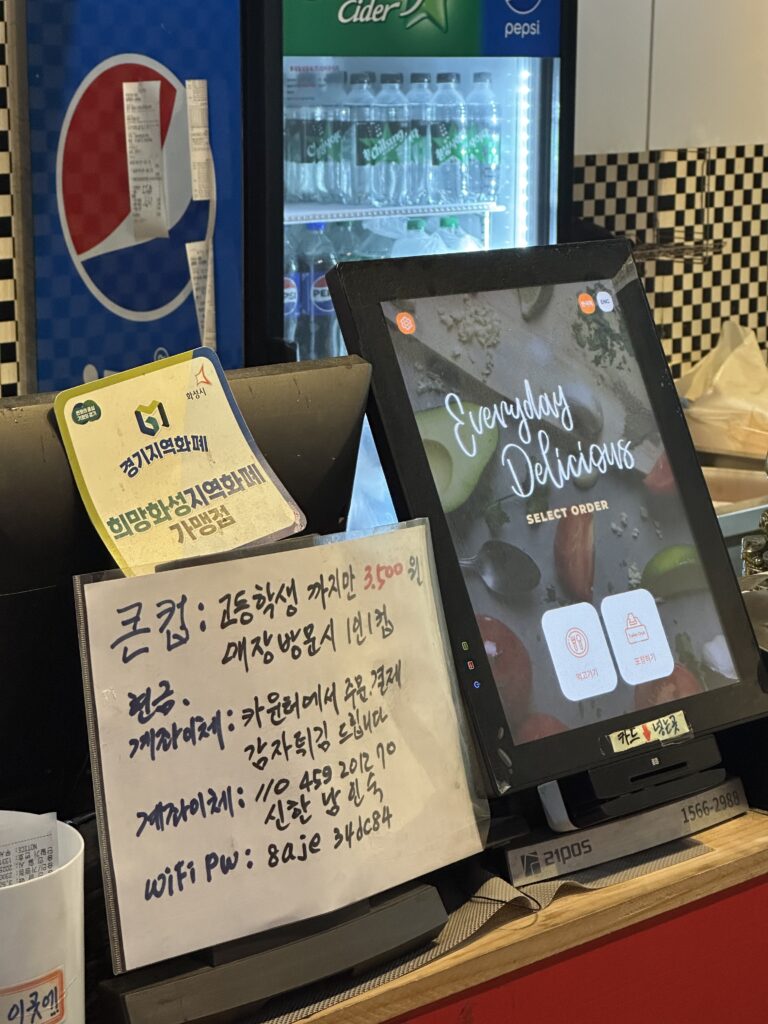 Cider
pepsi
한국어
ENG
화성시
경기지역화폐
희망화성지역화폐
가맹점
Everyday
Delicious
SELECT ORDER
먹고가기
포장하기
카드 넣는곳
큰컵 : 고등학생 까지만 3.500 원
매장방문시 1인 1컵
현금.
계좌이체 : 카운터에서 주문.결제
감자튀김 드립니다
계좌이체 : 110 459 201270
신한 남인숙
WiFi PW : 8aje 34dc84
21POS
1566-2988
이곳에!!